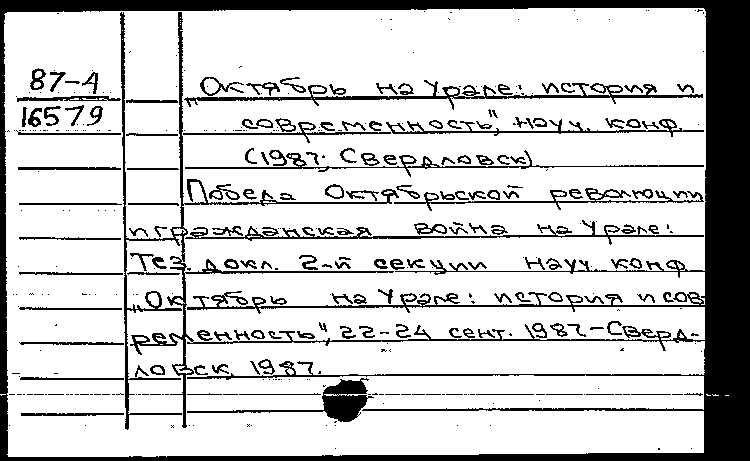 87-4
16579
„Октябрь на Урале: история и
современность", науч. конф.
(1987; Свердловск)
Победа Октябрьской революции
и гражданская война на Урале:
Тез. докл. 2-й секции науч. конф.
„Октябрь на Урале: история и сов-
ременность", 22-24 сент. 1987.-Сверд-
ловск, 1987.